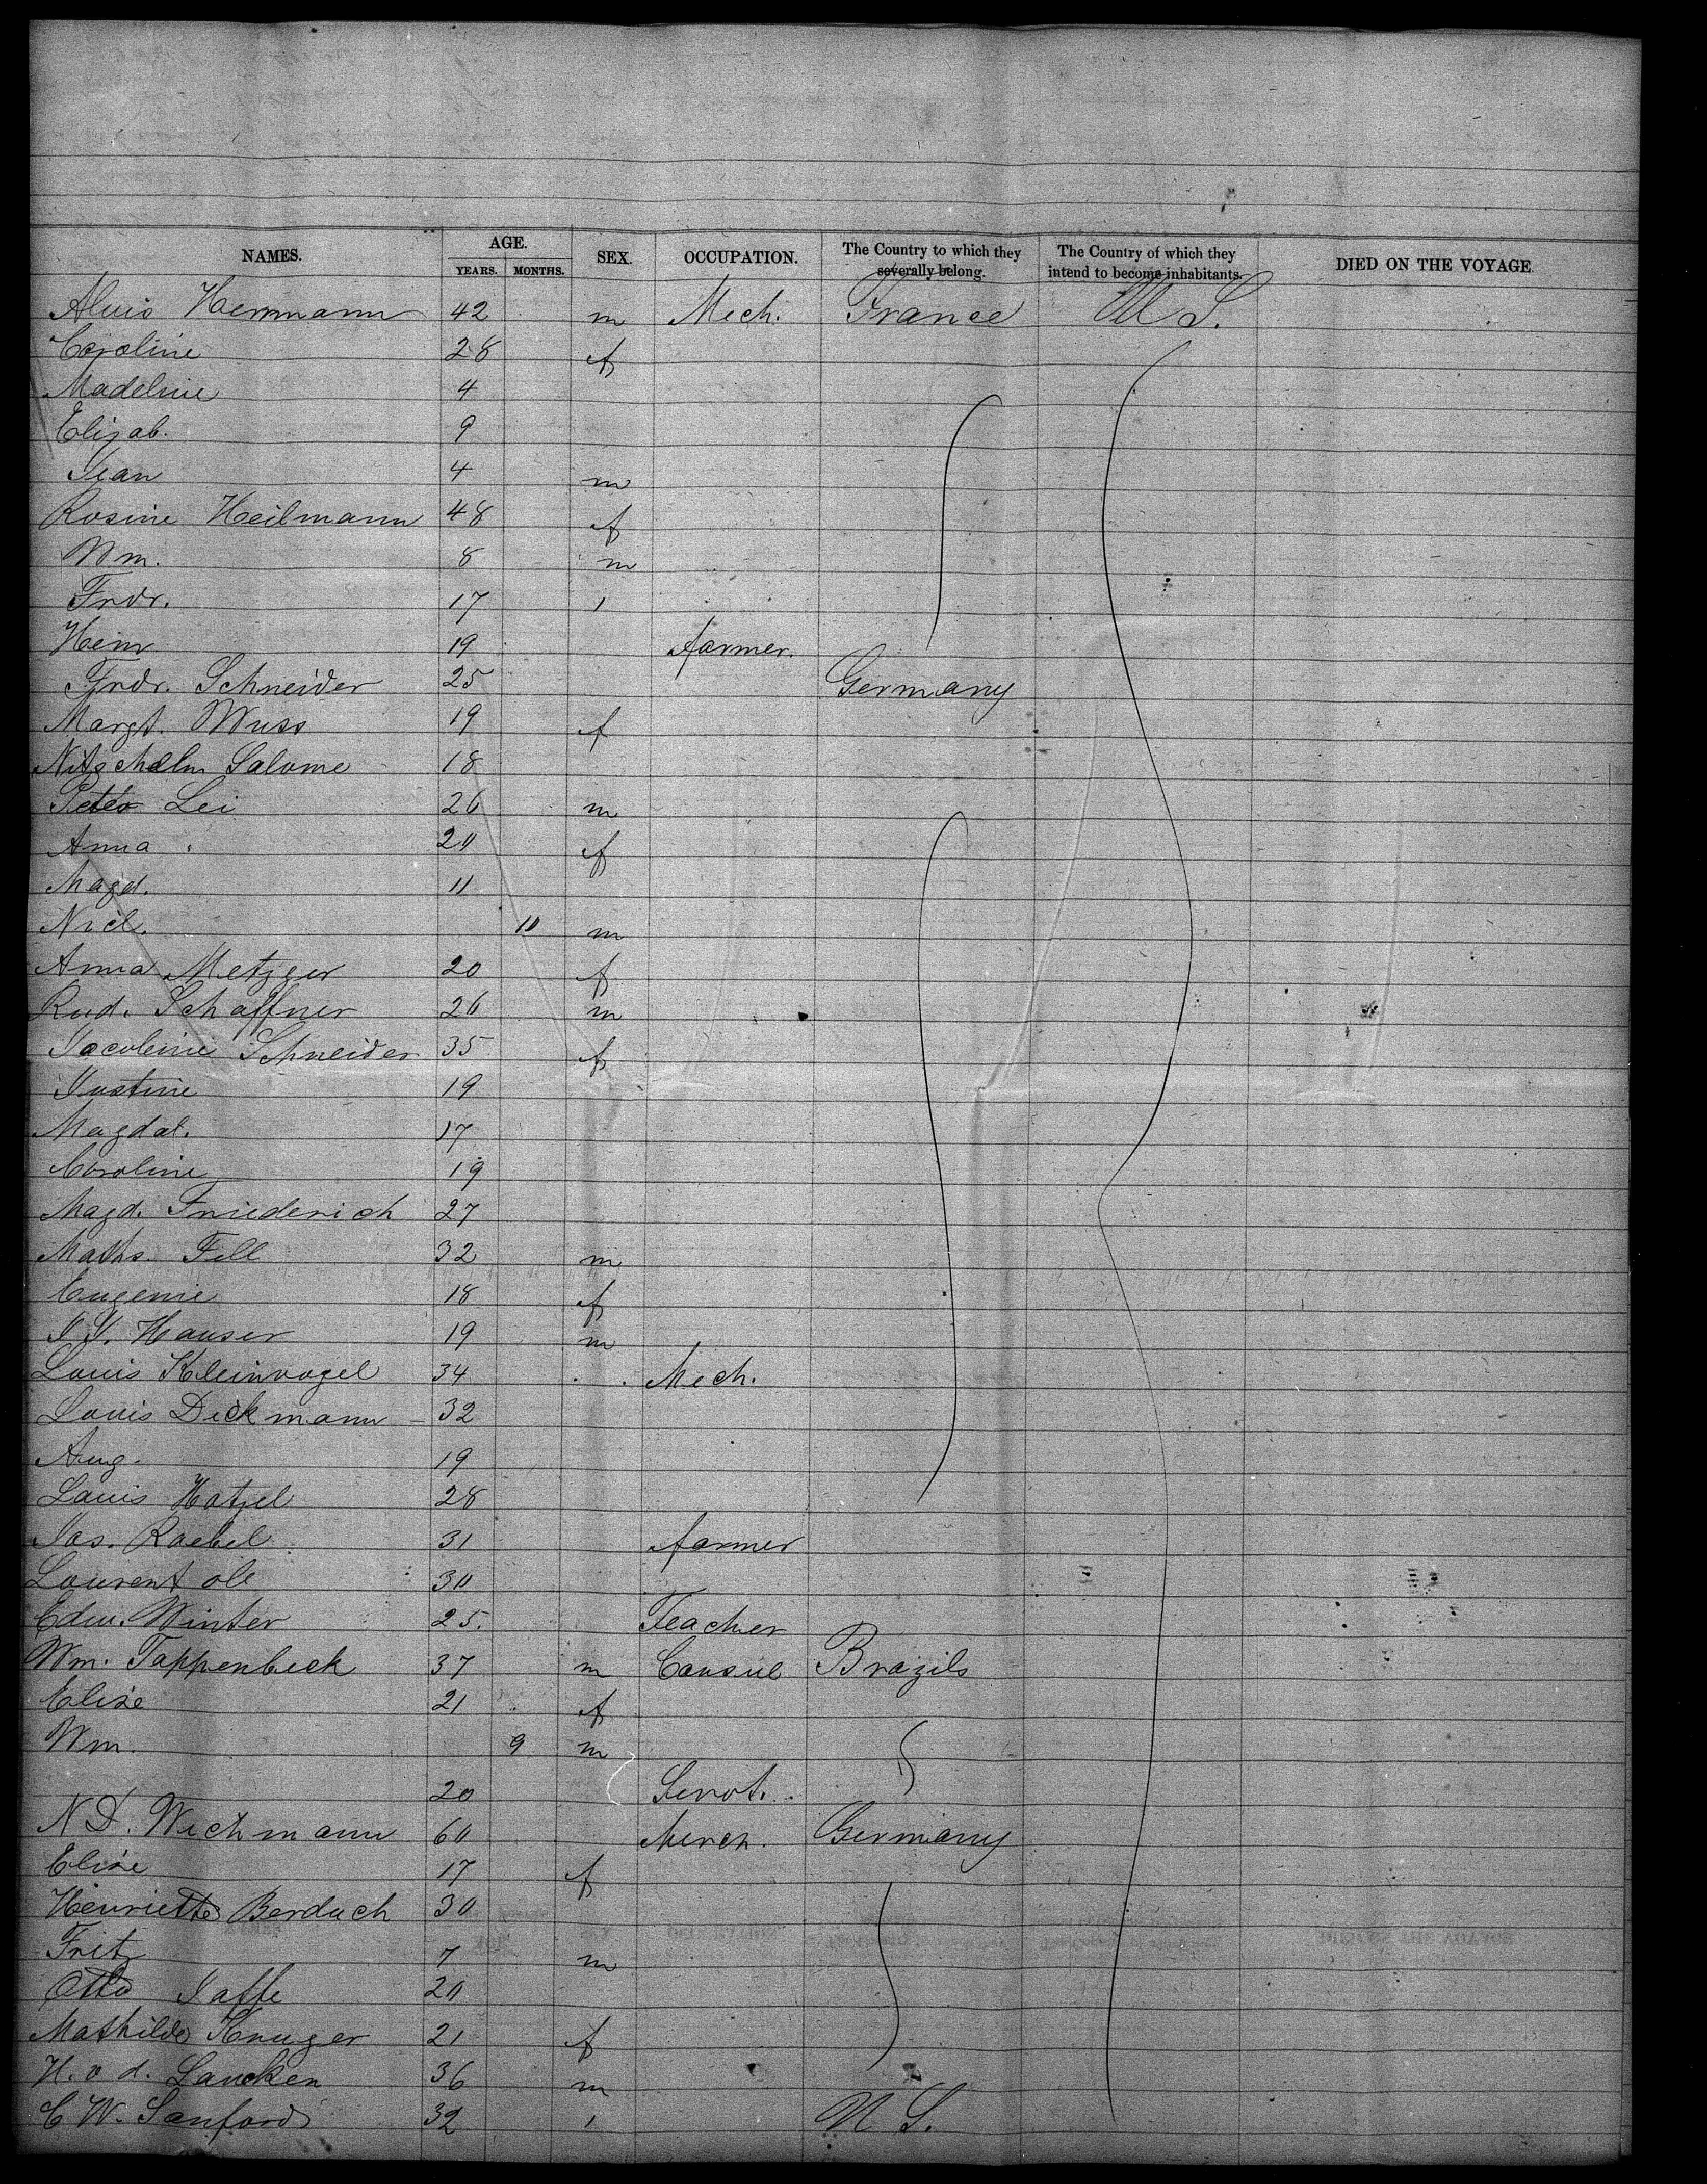 NAMES. AGE. YEARS. MONTHS. SEX. OCCUPATION. The Country to which they severally belong. The Country of which they intend to become inhabitants. DIED ON THE VOYAGE
Herrmann 42 m Mech. France U S.
Caroline 28 f
Madeline 4
Elizab. 9
Jean 4 m
Rosine Heilmann 48 f
Wm. 8 m
Frdr. 17 "
Heinr 19 farmer.
Frdr. Schneider 25 Germany
Margt. Wuss 19 f
Salome 18
Peter Lei 26 m
Anna " 20 f
Magd. 11
Nicl. 10 m
Anna Metzger 20 f
Rud. Schaffner 26 m
Schneider 35 f
Justine 19
Magdal. 17
Caroline 19
Magd. Friederich 27
Maths. Fell 32 m
Eugenie 18 f
J. J. Hauser 19 m
Louis Kleinvogel 34 Mech.
Louis Dickmann 32
Aug. 19
Louis Hatzel 28
Jos. Raebel 31 farmer
Laurent 30
Edw. Winter 25. Teacher
Wm. Tappenbeck 37 m Consul Brazils
Elise 21 f
Wm. 9 m
20 Servt.
N D. Wichmann 60 Merch. Germany
Elise 17 f
Henriette Berdach 30
Fritz 7 m
Otto Jaffe 20
Mathilde Kruger 21 f
H. v d. Lancken 36 m
C W. Sanford 32 " U S.